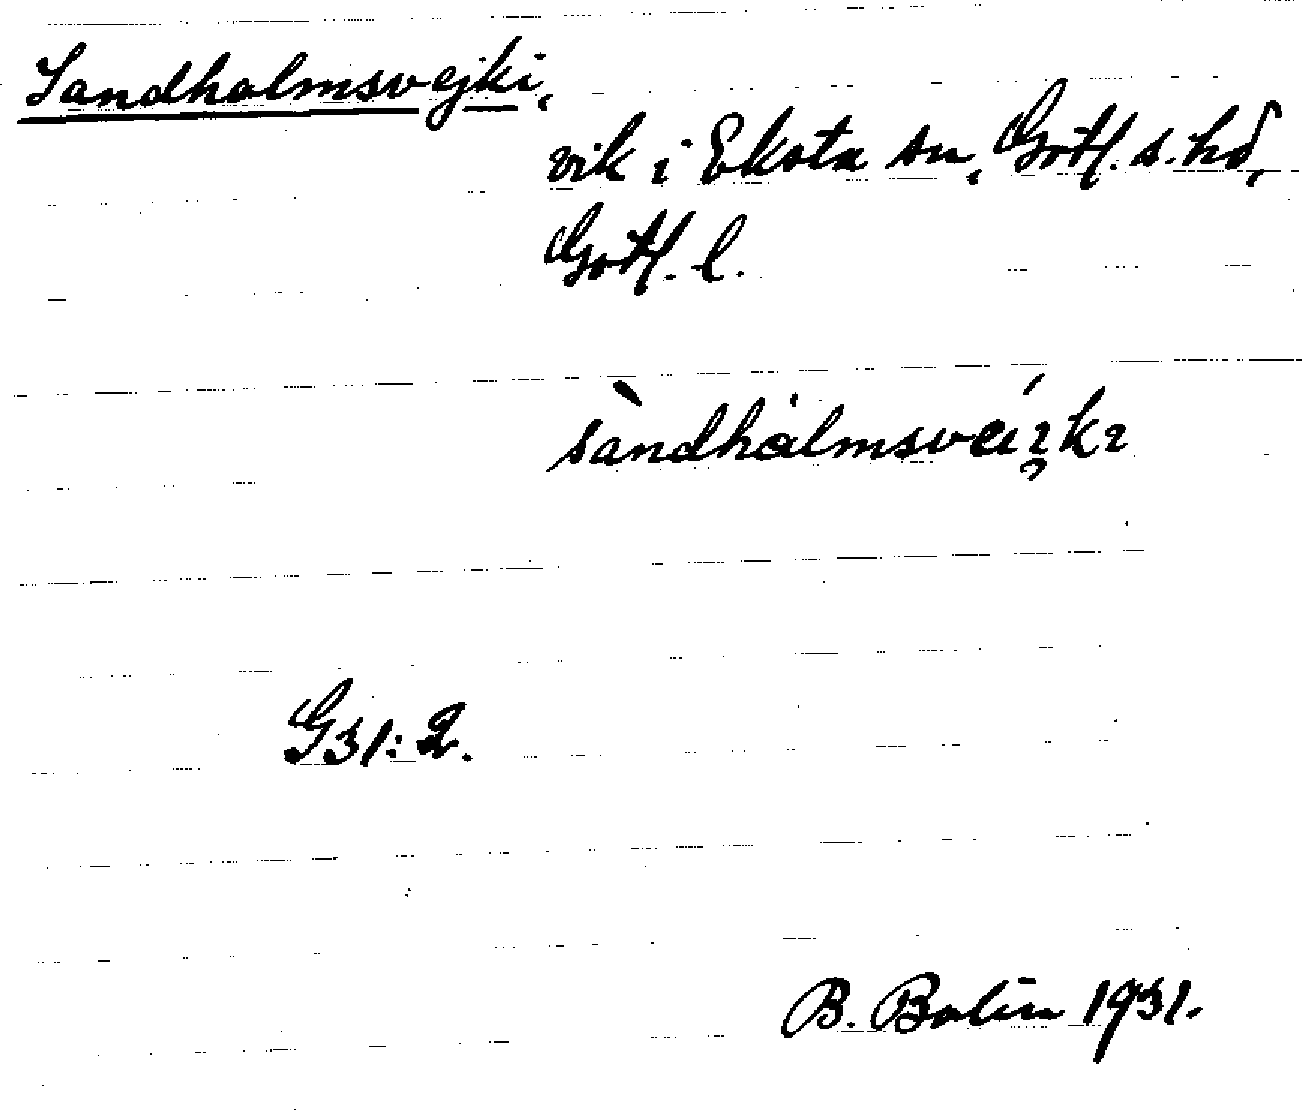 Sandholmsvejki,
vik i Eksta sn, Gotl. s. hd,
Gotl. l.
G31: 2.
B. Bolin 1931.